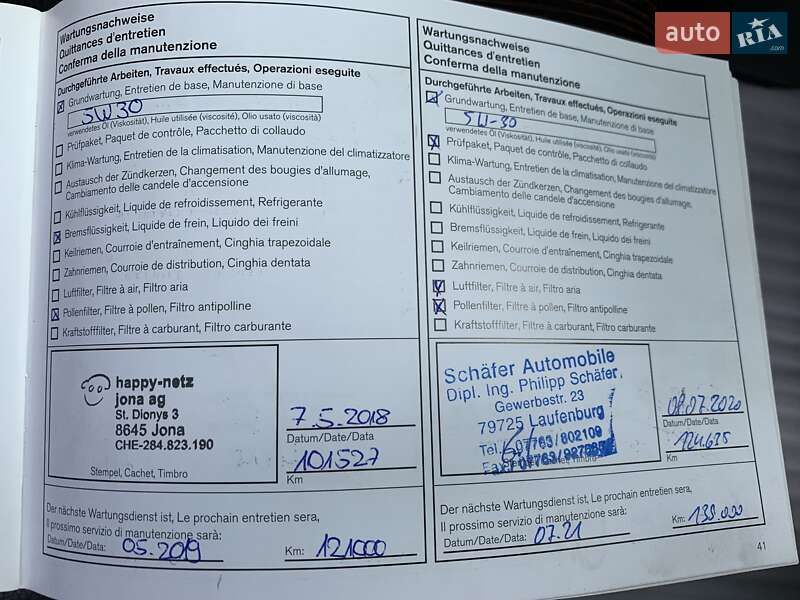 Wartungsnachweise
Quittances d'entretien
Conferma della manutenzione
Durchgeführte Arbeiten, Travaux effectués, Operazioni eseguite
Grundwartung, Entretien de base, Manutenzione di base
5W30
verwendetes Öl (Viskosität), Huile utilisée (viscosité), Olio usato (viscosità)
Prüfpaket, Paquet de contrôle, Pacchetto di collaudo
Klima-Wartung, Entretien de la climatisation, Manutenzione del climatizzatore
Austausch der Zündkerzen, Changement des bougies d'allumage,
Cambiamento delle candele d'accensione
Kühlflüssigkeit, Liquide de refroidissement, Refrigerante
Bremsflüssigkeit, Liquide de frein, Liquido dei freini
Keilriemen, Courroie d'entraînement, Cinghia trapezoidale
Zahnriemen, Courroie de distribution, Cinghia dentata
Luftfilter, Filtre à air, Filtro aria
Pollenfilter, Filtre à pollen, Filtro antipolline
Kraftstofffilter, Filtre à carburant, Filtro carburante
happy-netz
jona ag
St. Dionys 3
8645 Jona
CHE-284.823.190
Stempel, Cachet, Timbro
7.5.2018
Datum/Date/Data
101527
Km
Der nächste Wartungsdienst ist, Le prochain entretien sera,
Il prossimo servizio di manutenzione sarà:
Datum/Date/Data: 05.2019 Km: 121000
Wartungsnachweise
Quittances d'entretien
Conferma della manutenzione
Durchgeführte Arbeiten, Travaux effectués, Operazioni eseguite
Grundwartung, Entretien de base, Manutenzione di base
5W-30
verwendetes Öl (Viskosität), Huile utilisée (viscosité), Olio usato (viscosità)
Prüfpaket, Paquet de contrôle, Pacchetto di collaudo
Klima-Wartung, Entretien de la climatisation, Manutenzione del climatizzatore
Austausch der Zündkerzen, Changement des bougies d'allumage,
Cambiamento delle candele d'accensione
Kühlflüssigkeit, Liquide de refroidissement, Refrigerante
Bremsflüssigkeit, Liquide de frein, Liquido dei freini
Keilriemen, Courroie d'entraînement, Cinghia trapezoidale
Zahnriemen, Courroie de distribution, Cinghia dentata
Luftfilter, Filtre à air, Filtro aria
Pollenfilter, Filtre à pollen, Filtro antipolline
Kraftstofffilter, Filtre à carburant, Filtro carburante
Schäfer Automobile
Dipl. Ing. Philipp Schäfer
Gewerbestr. 23
79725 Laufenburg
Tel. 07763/802109
08.07.2020
Datum/Date/Data
124.635
Km
Der nächste Wartungsdienst ist, Le prochain entretien sera,
Il prossimo servizio di manutenzione sarà:
Datum/Date/Data: 07.21 Km: 139.000
41
auto RIA .com